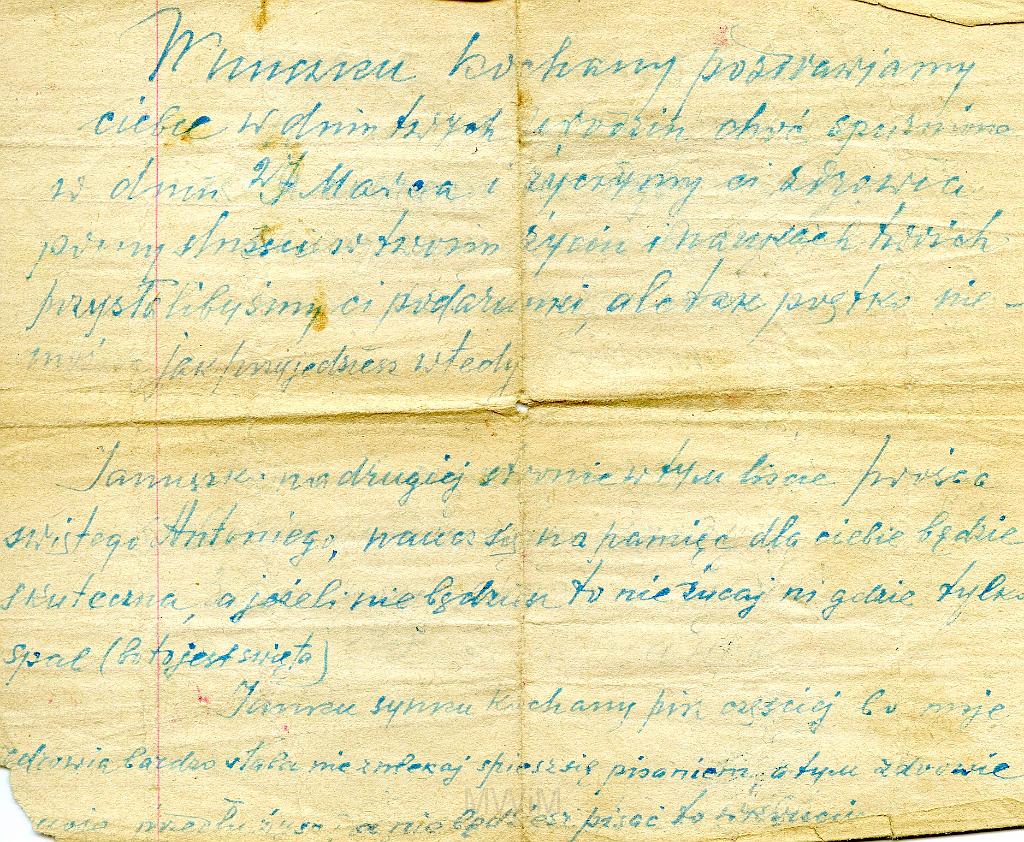 Wnuczku kochany pozdrawiamy
ciebie w dniu twych urodzin choć spuźnione
w dniu 27 Marca i życzymy ci zdrowia
w twoim życiu i naukach twoich
przysłalibyśmy ci podarunki, ale tak prętko nie-
jak przyjedziesz wtedy
na drugiej stronie w tym liście
świętego Antoniego, naucz się na pamięć dla ciebie będzie
skuteczna, a jeżeli nie będziesz to nie żucaj ni gdzie tylko
spal (bo to jest święta)
synku kochany pisz częściej bo moje
zdrowia bardzo słabe nie zwlekaj spiesz się pisaniem, a tym zdrowie
a nie będziesz pisać to
MWM